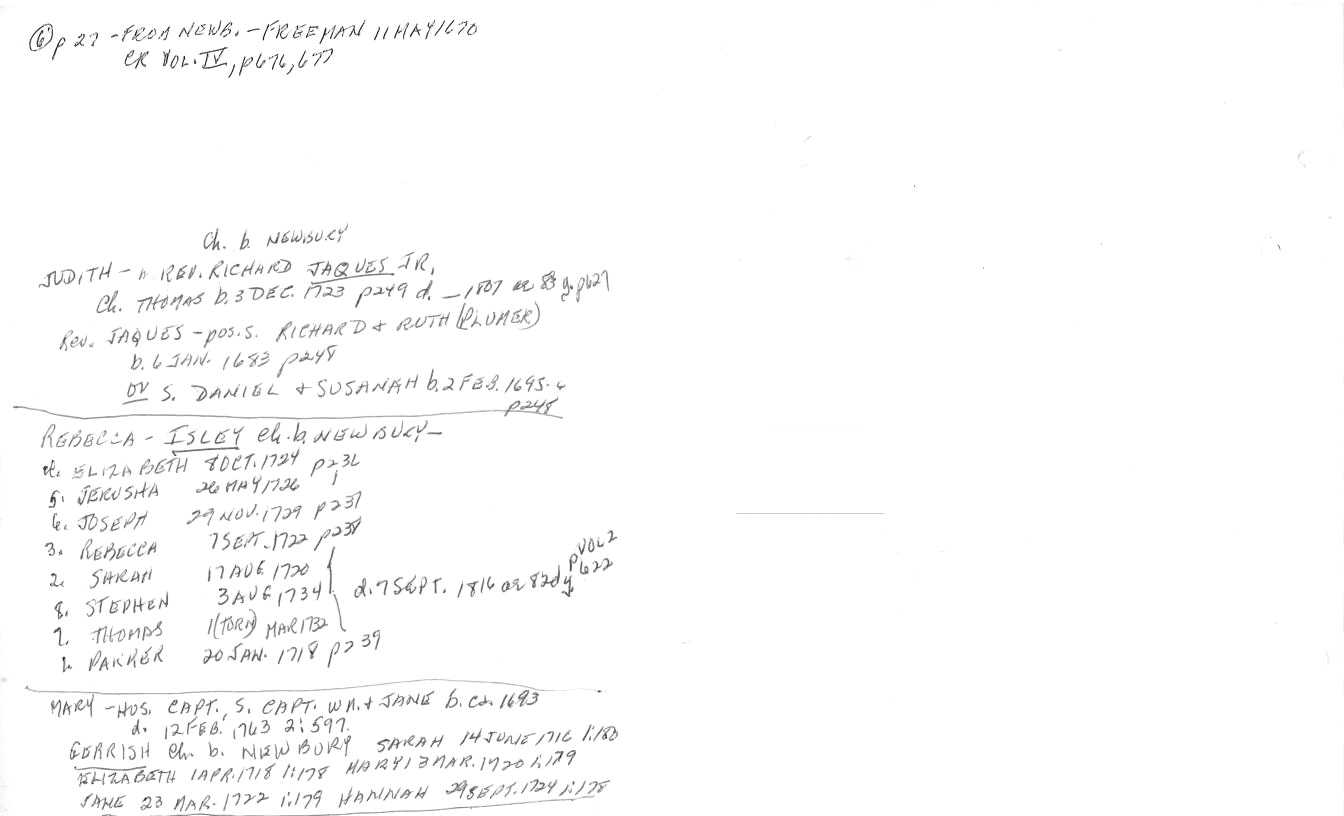 ⑥ p 27 - FROM NEWB. - FREEMAN 11 MAY 1670
CR VOL. IV, p 676, 677
Ch. b. NEWBURY
JUDITH - h REV. RICHARD JAQUES JR.
Ch. THOMAS b. 3 DEC. 1723 p249 d. _ 1807 ae 83 y. p627
Rev. JAQUES - pos. s. RICHARD & RUTH (PLUMER)
b. 6 JAN. 1683 p248
or S. DANIEL & SUSANAH b. 2 FEB. 1695-6
p248
REBECCA - ISLEY Ch. b. NEWBURY -
4. ELIZABETH 8 OCT. 1724 p236
5. JERUSHA 26 MAY 1726
6. JOSEPH 29 NOV. 1729 p237
3. REBECCA 7 SEPT. 1722 p238
2. SARAH 17 AUG 1720
8. STEPHEN 3 AUG 1734 d. 7 SEPT. 1816 ae 82 dy VOL 2 p622
7. THOMAS 1(TORN) MAR 1732
1. PARKER 20 JAN. 1718 p239
MARY - HUS. CAPT., S. CAPT. WM. & JANE b. ca. 1693
d. 12 FEB. 1763 2:597.
GERRISH Ch. b. NEWBURY SARAH 14 JUNE 1716 1:180
ELIZABETH 1 APR. 1718 1:178 MARY 13 MAR. 1720 1:179
JANE 23 MAR. 1722 1:179 HANNAH 29 SEPT. 1724 1:178